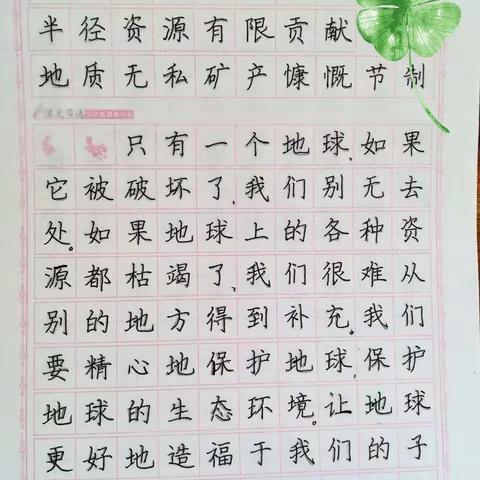 半径资源有限贡献
地质无私矿产慷慨节制
课文节选
只有一个地球,如果
它被破坏了,我们别无去
处。如果地球上的各种资
源都枯竭了,我们很难从
别的地方得到补充。我们
要精心地保护地球,保护
地球的生态环境。让地球
更好地造福于我们的子